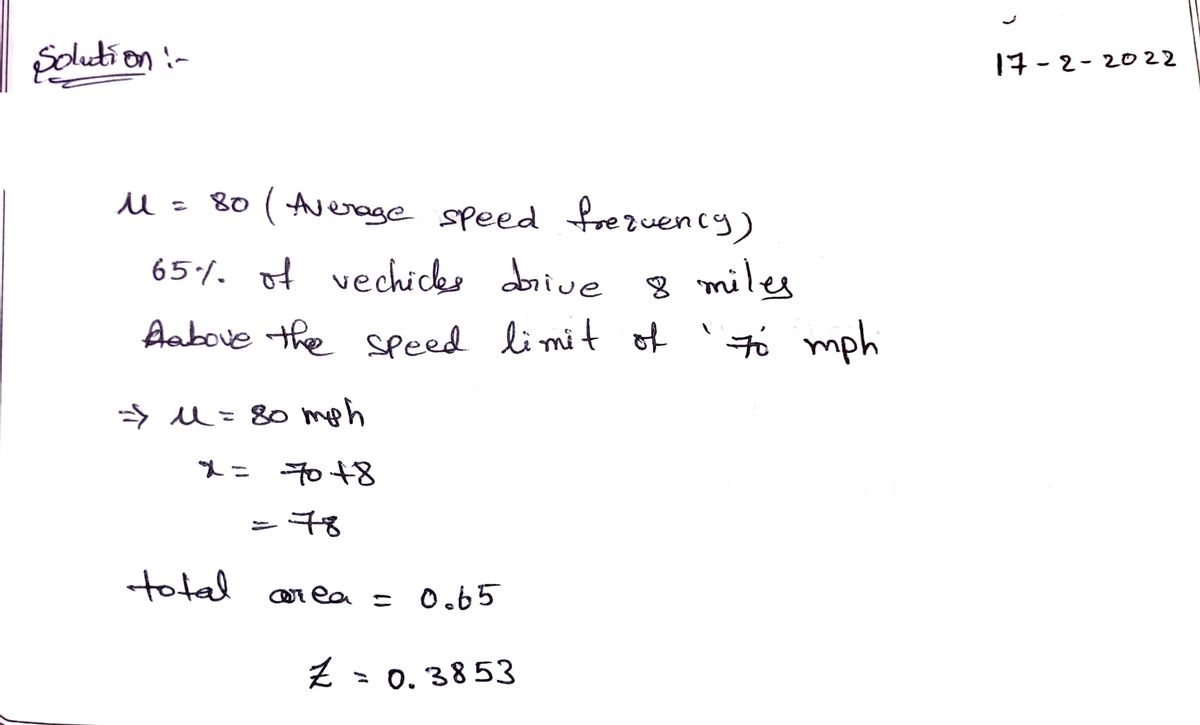 Solution :-
17-2-2022
μ = 80 (Average speed frequency)
65%. of vechicles drive 8 miles
Aabove the speed limit of '70' mph
⇒ μ = 80 mph
x = 70+8
= 78
total area = 0.65
Z = 0.3853